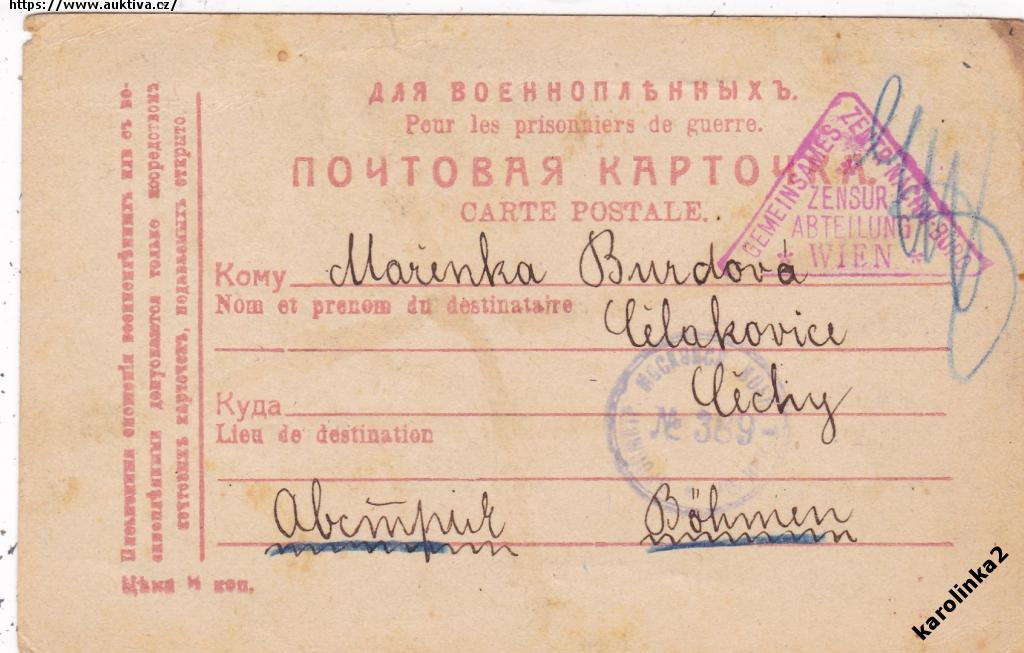 https://www.auktiva.cz/
ДЛЯ ВОЕННОПЛѢННЫХЪ.
Pour les prisonniers de guerre.
ПОЧТОВАЯ КАРТОЧКА.
CARTE POSTALE.
GEMEINSAMES ZENTRALNACHW.-BÜRO
ZENSUR
ABTEILUNG
* WIEN *
Кому Mařenka Burdová
Nom et prenom du destinataire
Čelakovice
МОСКОВСК.
№ 369
Куда Čechy
Lieu de destination
Австрия Böhmen
Письменныя сношенія военноплѣнныхъ или съ во-
енноплѣнными допускаются только посредствомъ
почтовыхъ карточекъ, подаваемыхъ открыто.
Цѣна коп.
karolinka2